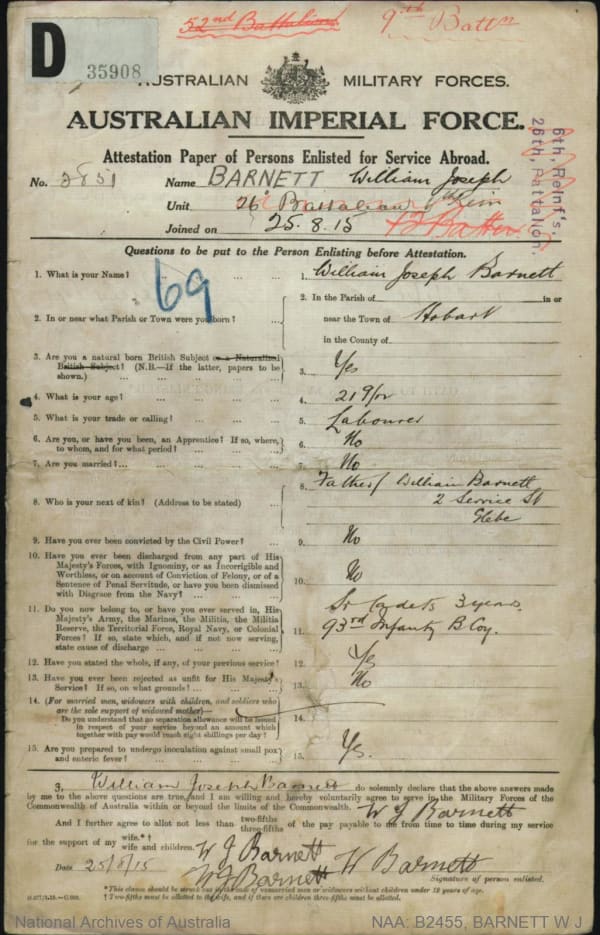 52nd Battalion 9th Battn
D
35908
AUSTRALIAN MILITARY FORCES.
AUSTRALIAN IMPERIAL FORCE.
6th, Reinf's.
26th, Battalion
Attestation Paper of Persons Enlisted for Service Abroad.
No. 3851 Name BARNETT William Joseph
Unit 26 Battalion Rein
Joined on 25.8.15
Questions to be put to the Person Enlisting before Attestation.
69
1. What is your Name? ... ... ... 1. William Joseph Barnett
2. In or near what Parish or Town were you born? ... 2. In the Parish of in or
near the Town of Hobart
in the County of
3. Are you a natural born British Subject or a Naturalized
British Subject? (N.B.—If the latter, papers to be
shown.) ... ... 3. Yes
4. What is your age? ... ... ... 4. 21 9/12
5. What is your trade or calling? ... ... 5. Labourer
6. Are you, or have you been, an Apprentice? If so, where,
to whom, and for what period? ... ... 6. No
7. Are you married?... ... ... 7. No
8. Who is your next of kin? (Address to be stated) ... 8. Father William Barnett
2 Service St
Glebe
9. Have you ever been convicted by the Civil Power? ... 9. No
10. Have you ever been discharged from any part of His
Majesty's Forces, with Ignominy, or as Incorrigible and
Worthless, or on account of Conviction of Felony, or of a
Sentence of Penal Servitude, or have you been dismissed
with Disgrace from the Navy? ... ... 10. No
11. Do you now belong to, or have you ever served in, His
Majesty's Army, the Marines, the Militia, the Militia
Reserve, the Territorial Force, Royal Navy, or Colonial
Forces? If so, state which, and if not now serving,
state cause of discharge ... ... 11. Sr Cadets 3 years
93rd Infantry B Coy.
12. Have you stated the whole, if any, of your previous service? 12. Yes
13. Have you ever been rejected as unfit for His Majesty's
Service? If so, on what grounds? ... ... 13. No
14. (For married men, widowers with children, and soldiers who
are the sole support of widowed mother)—
Do you understand that no separation allowance will be issued
in respect of your service beyond an amount which
together with pay would reach eight shillings per day? 14.
15. Are you prepared to undergo inoculation against small pox
and enteric fever? ... ... 15. Yes.
I, William Joseph Barnett do solemnly declare that the above answers made
by me to the above questions are true, and I am willing and hereby voluntarily agree to serve in the Military Forces of the
Commonwealth of Australia within or beyond the limits of the Commonwealth. W J Barnett
And I further agree to allot not less than two-fifths three-fifths of the pay payable to me from time to time during my service
for the support of my wife.*† wife and children. W J Barnett
Date 25/8/15 W J Barnett W Barnett
Signature of person enlisted.
*This clause should be struck out in the case of unmarried men or widowers without children under 18 years of age.
† Two-fifths must be allotted to the wife, and if there are children three-fifths must be allotted.
National Archives of Australia NAA: B2455, BARNETT W J